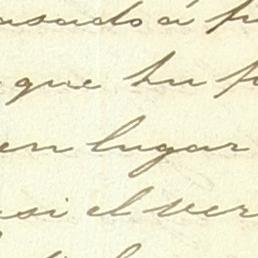 usado á
que tu
en lugar
si el ver